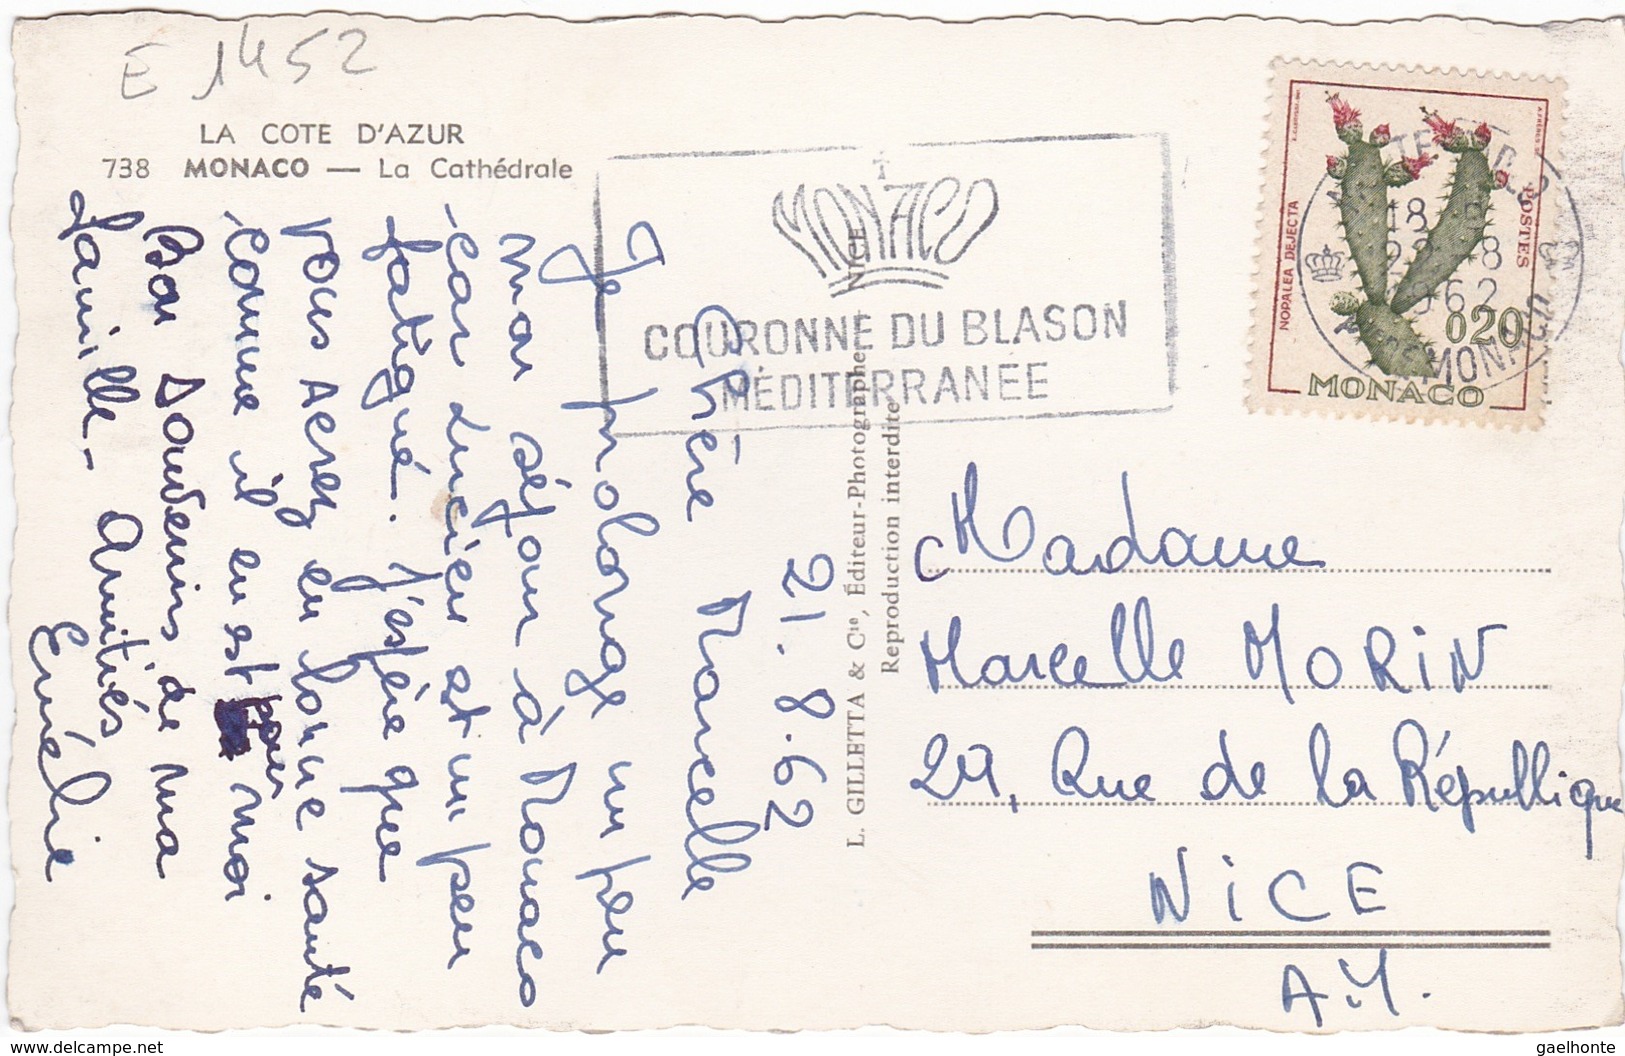 E 1452
LA COTE D'AZUR
738 MONACO — La Cathédrale
21.8.62
Chère Marcelle
Je prolonge un peu
mon séjour à Monaco
car Lucien est un peu
fatigué. J'espère que
vous serez en bonne santé
comme il en est pour moi
Bon souvenirs de ma
famille - Amitiés
L. GILLETTA & Cie, Éditeur-Photographe, NICE
Reproduction interdite
MONACO
COURONNE DU BLASON
MÉDITERRANÉE
NOPALEA DEJECTA
POSTES
0.20
MONACO
18
1962
Madame
Marcelle MORIN
29, Rue de la République
NICE
A.M.
delcampe.net
gaelhonte